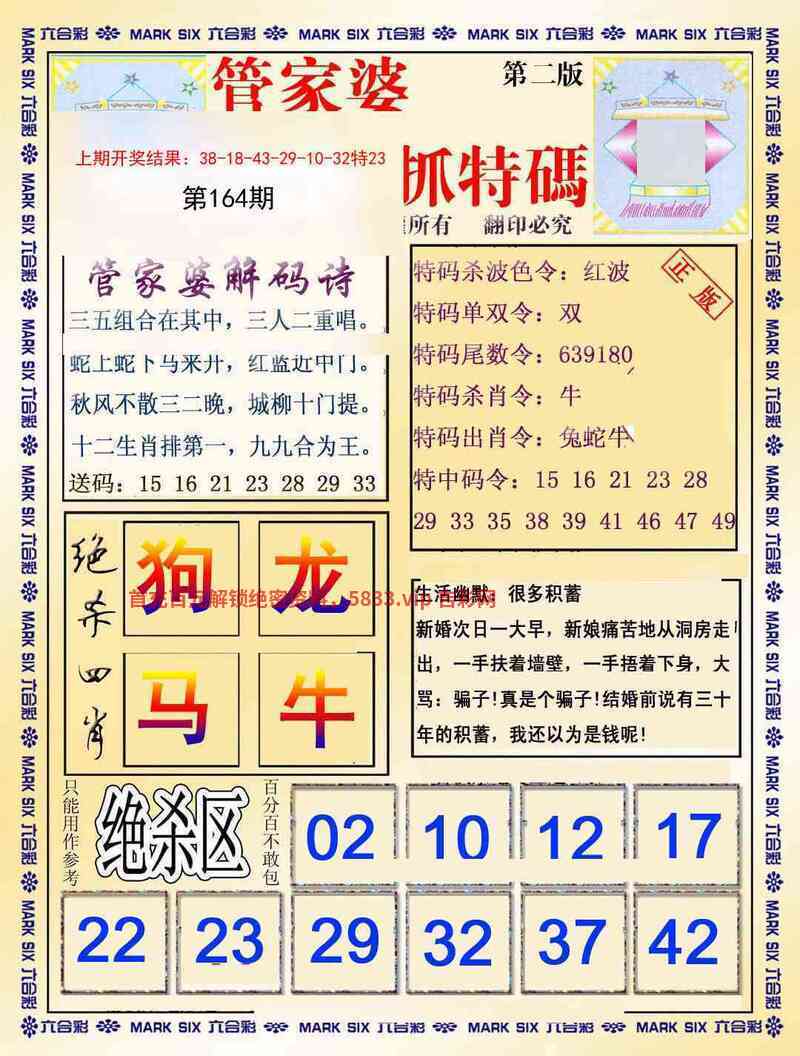 六合彩 MARK SIX 六合彩 MARK SIX 六合彩 MARK SIX 六合彩 MARK SIX 六合彩
管家婆
第二版
上期开奖结果：38-18-43-29-10-32特23
抓特碼
第164期
所有 翻印必究
管家婆解码诗
三五组合在其中，三人二重唱。
蛇上蛇下马来开，红蓝近中门。
秋风不散三二晚，城柳十门提。
十二生肖排第一，九九合为王。
送码：15 16 21 23 28 29 33
正版
特码杀波色令：红波
特码单双令：双
特码尾数令：639180
特码杀肖令：牛
特码出肖令：兔蛇牛
特中码令：15 16 21 23 28
29 33 35 38 39 41 46 47 49
绝杀四肖
狗 龙
马 牛
5833.vip
生活幽默：很多积蓄
新婚次日一大早，新娘痛苦地从洞房走
出，一手扶着墙壁，一手捂着下身，大
骂：骗子!真是个骗子!结婚前说有三十
年的积蓄，我还以为是钱呢!
只能用作参考
绝杀区
百分百不敢包
02 10 12 17
22 23 29 32 37 42
六合彩 MARK SIX 六合彩 MARK SIX 六合彩 MARK SIX 六合彩 MARK SIX 六合彩